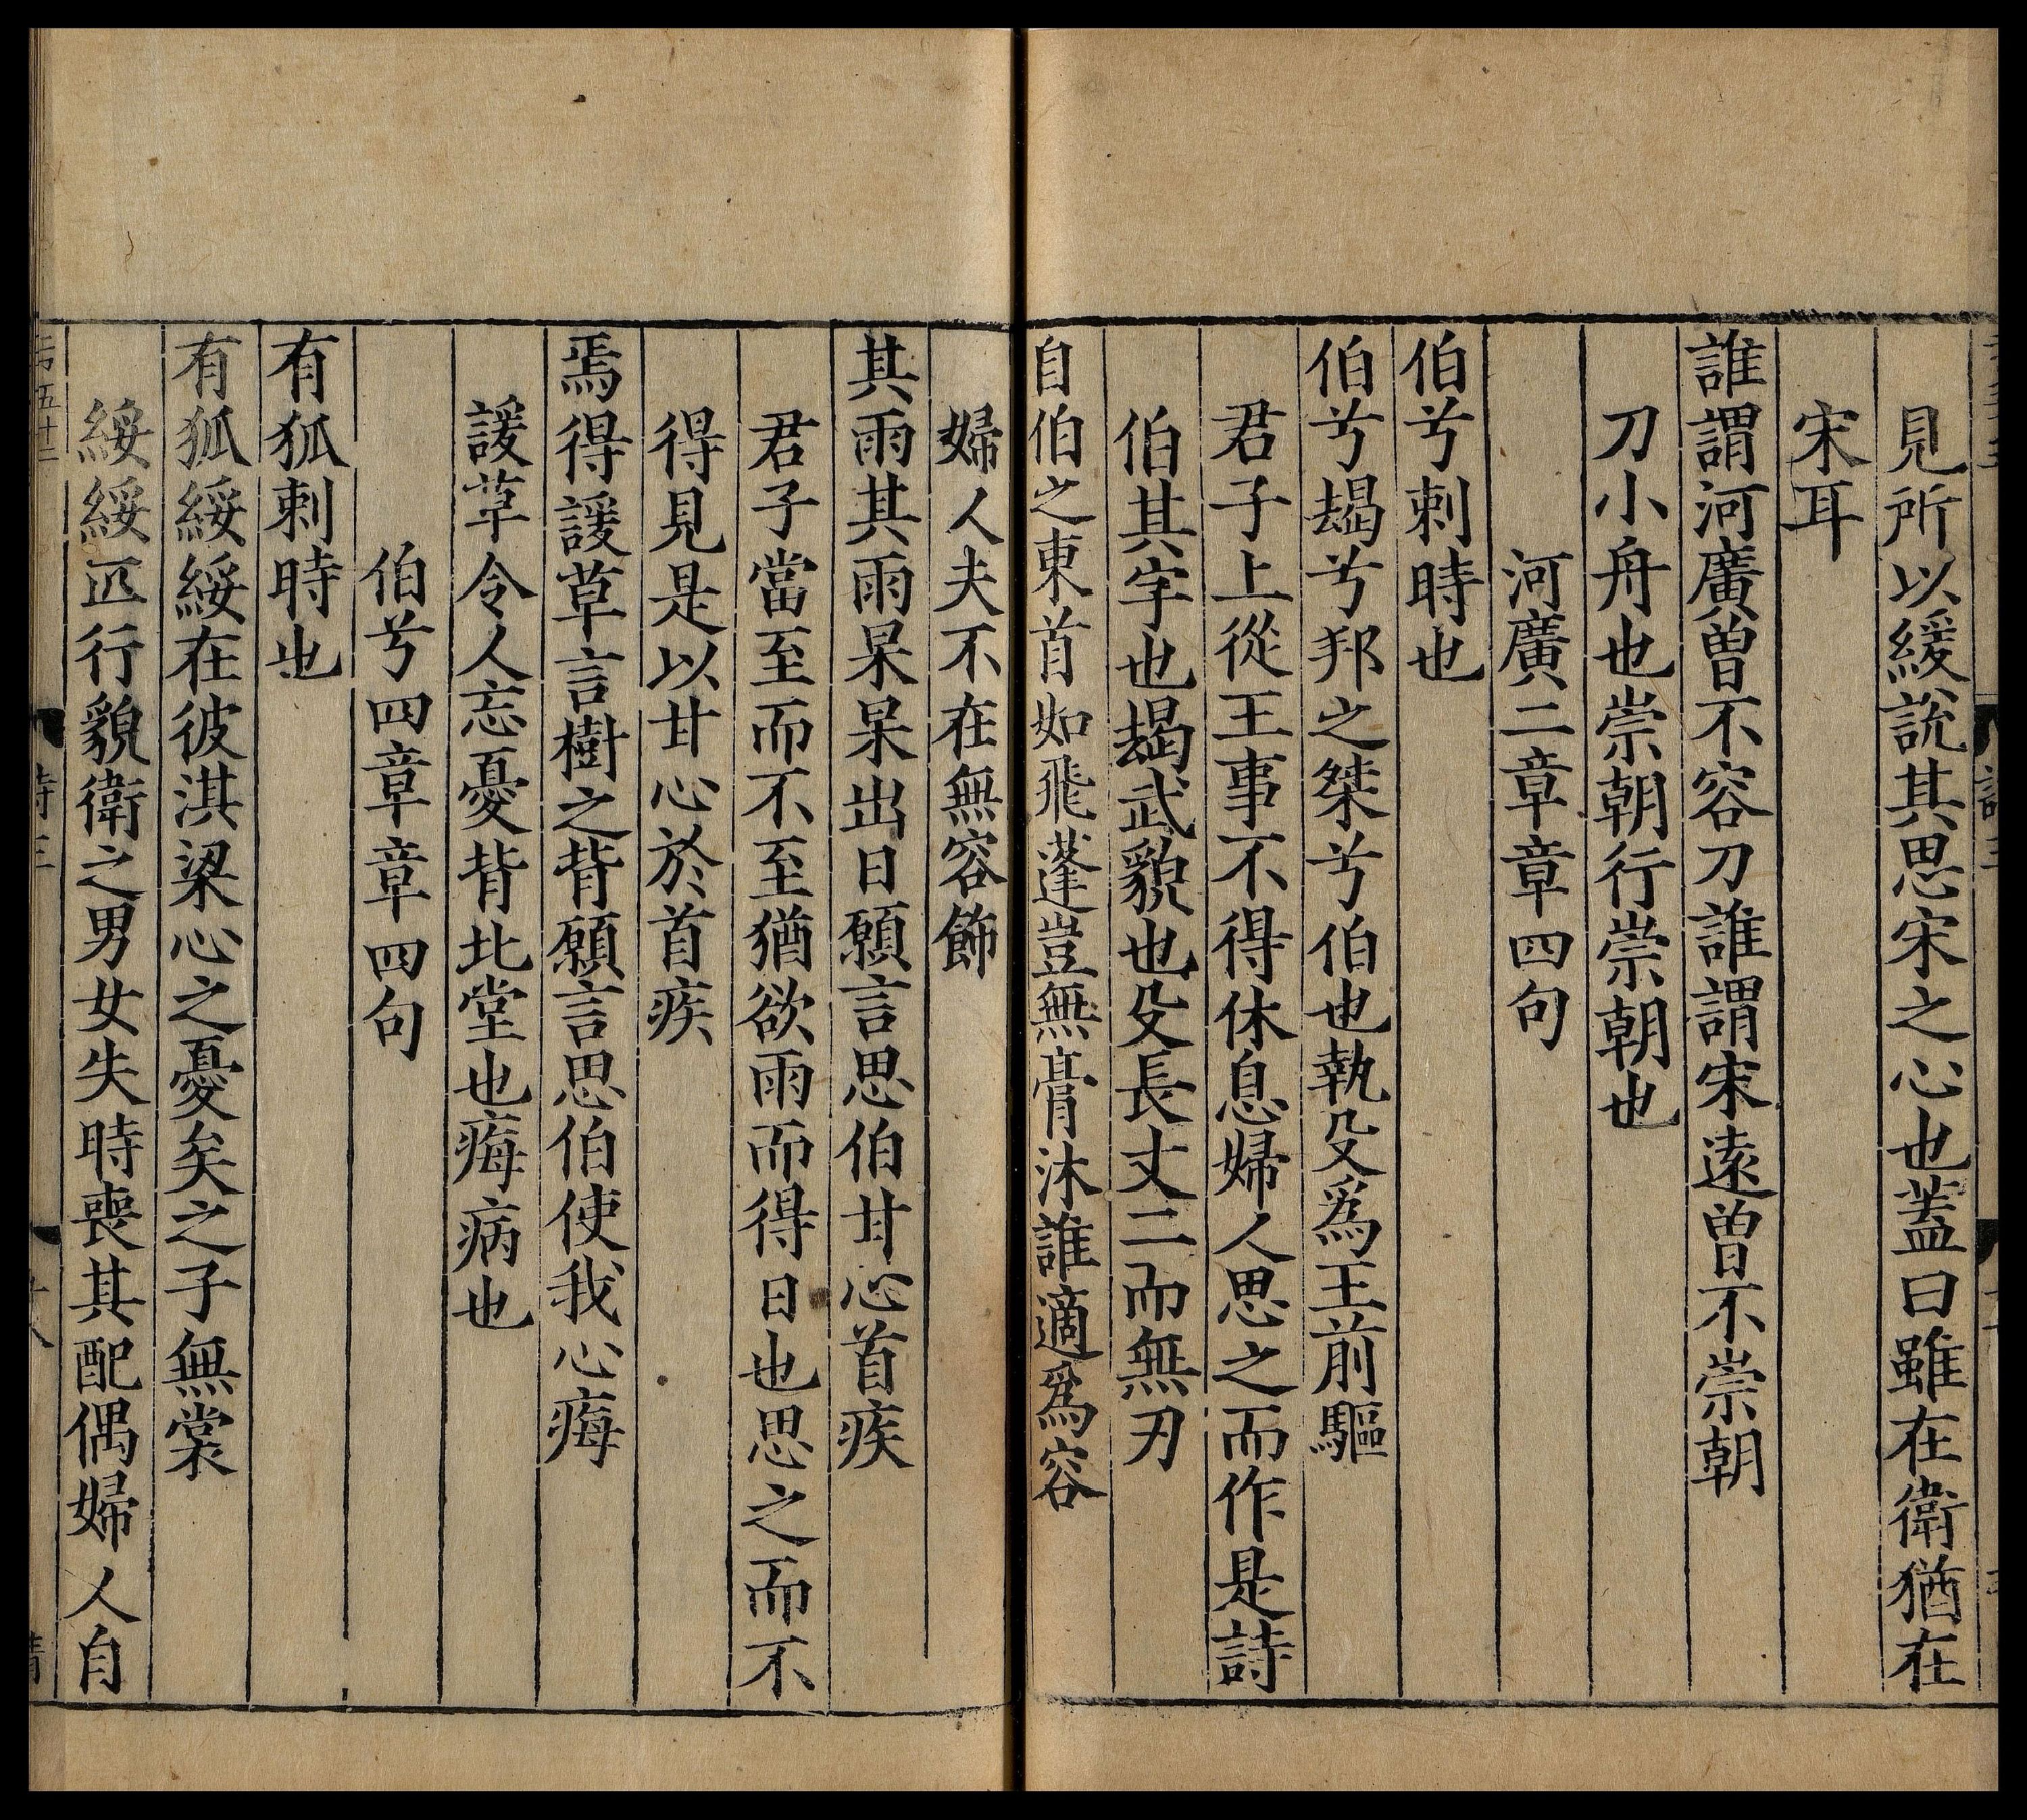 見所以緩說其思宋之心也蓋曰雖在衛猶在
宋耳
誰謂河廣曾不容刀誰謂宋遠曾不崇朝
刀小舟也崇朝行崇朝也
河廣二章章四句
伯兮刺時也
伯兮朅兮邦之桀兮伯也執殳爲王前驅
君子上從王事不得休息婦人思之而作是詩
伯其字也朅武貌也殳長丈二而無刃
自伯之東首如飛蓬豈無膏沐誰適爲容
婦人夫不在無容飾
其雨其雨杲杲出日願言思伯甘心首疾
君子當至而不至猶欲雨而得日也思之而不
得見是以甘心於首疾
焉得諼草言樹之背願言思伯使我心痗
諼草令人忘憂背北堂也痗病也
伯兮四章章四句
有狐刺時也
有狐綏綏在彼淇梁心之憂矣之子無裳
綏綏匹行貌衛之男女失時喪其配偶婦人自